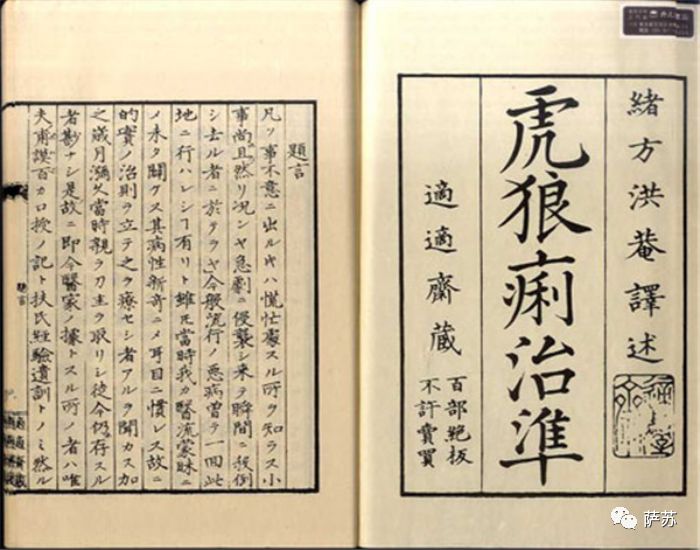 緒方洪菴譯述
虎狼痢治準
適適齋蔵
百部絶板
不許賣買
題言
凡ソ事不意ニ出ルキハ慌忙處スル所ヲ知ラス小
事尚且然リ况ンヤ急劇ニ侵襲シ来テ瞬間ニ殺倒
シ去ル者ニ於テヲヤ今般流行ノ悪病曽テ一回此
地ニ行ハレシヿ有リト雖𪜈當時我カ醫流蒙昧ニ
ノ未タ闢ケス其病性新奇ニメ耳目ニ慣レス故ニ
的實ノ治則ヲ立テ之ヲ療セシ者アルヲ聞カス加
之歳月瀰久當時親ラ刀圭ヲ取リシ徒今仍存スル
者尠ナシ是故ニ即今醫家ノ據トスル所ノ者ハ唯
夫甫謨百カ口授ノ記ト扶氏経驗遺訓トノミ然ル
題言
萨苏